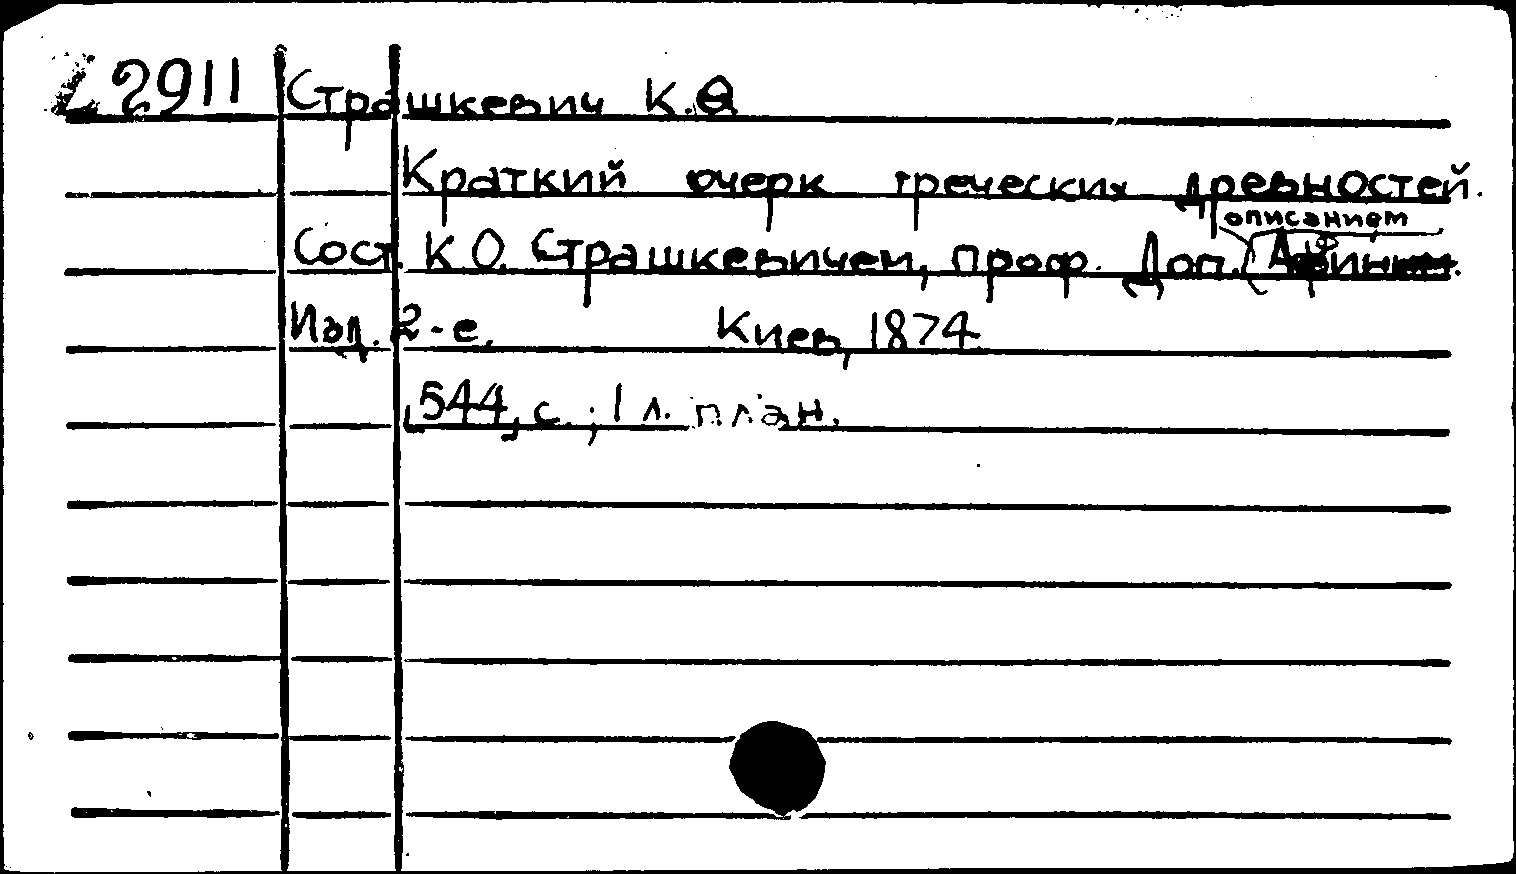 Z 2911 Страшкевич К.Ѳ
Краткий очерк греческих древностей.
описанием
Сост. К О. Страшкевичем, проф. Доп.
Изд. 2-е. Киев, 1874
544, с. ; 1 л. план.